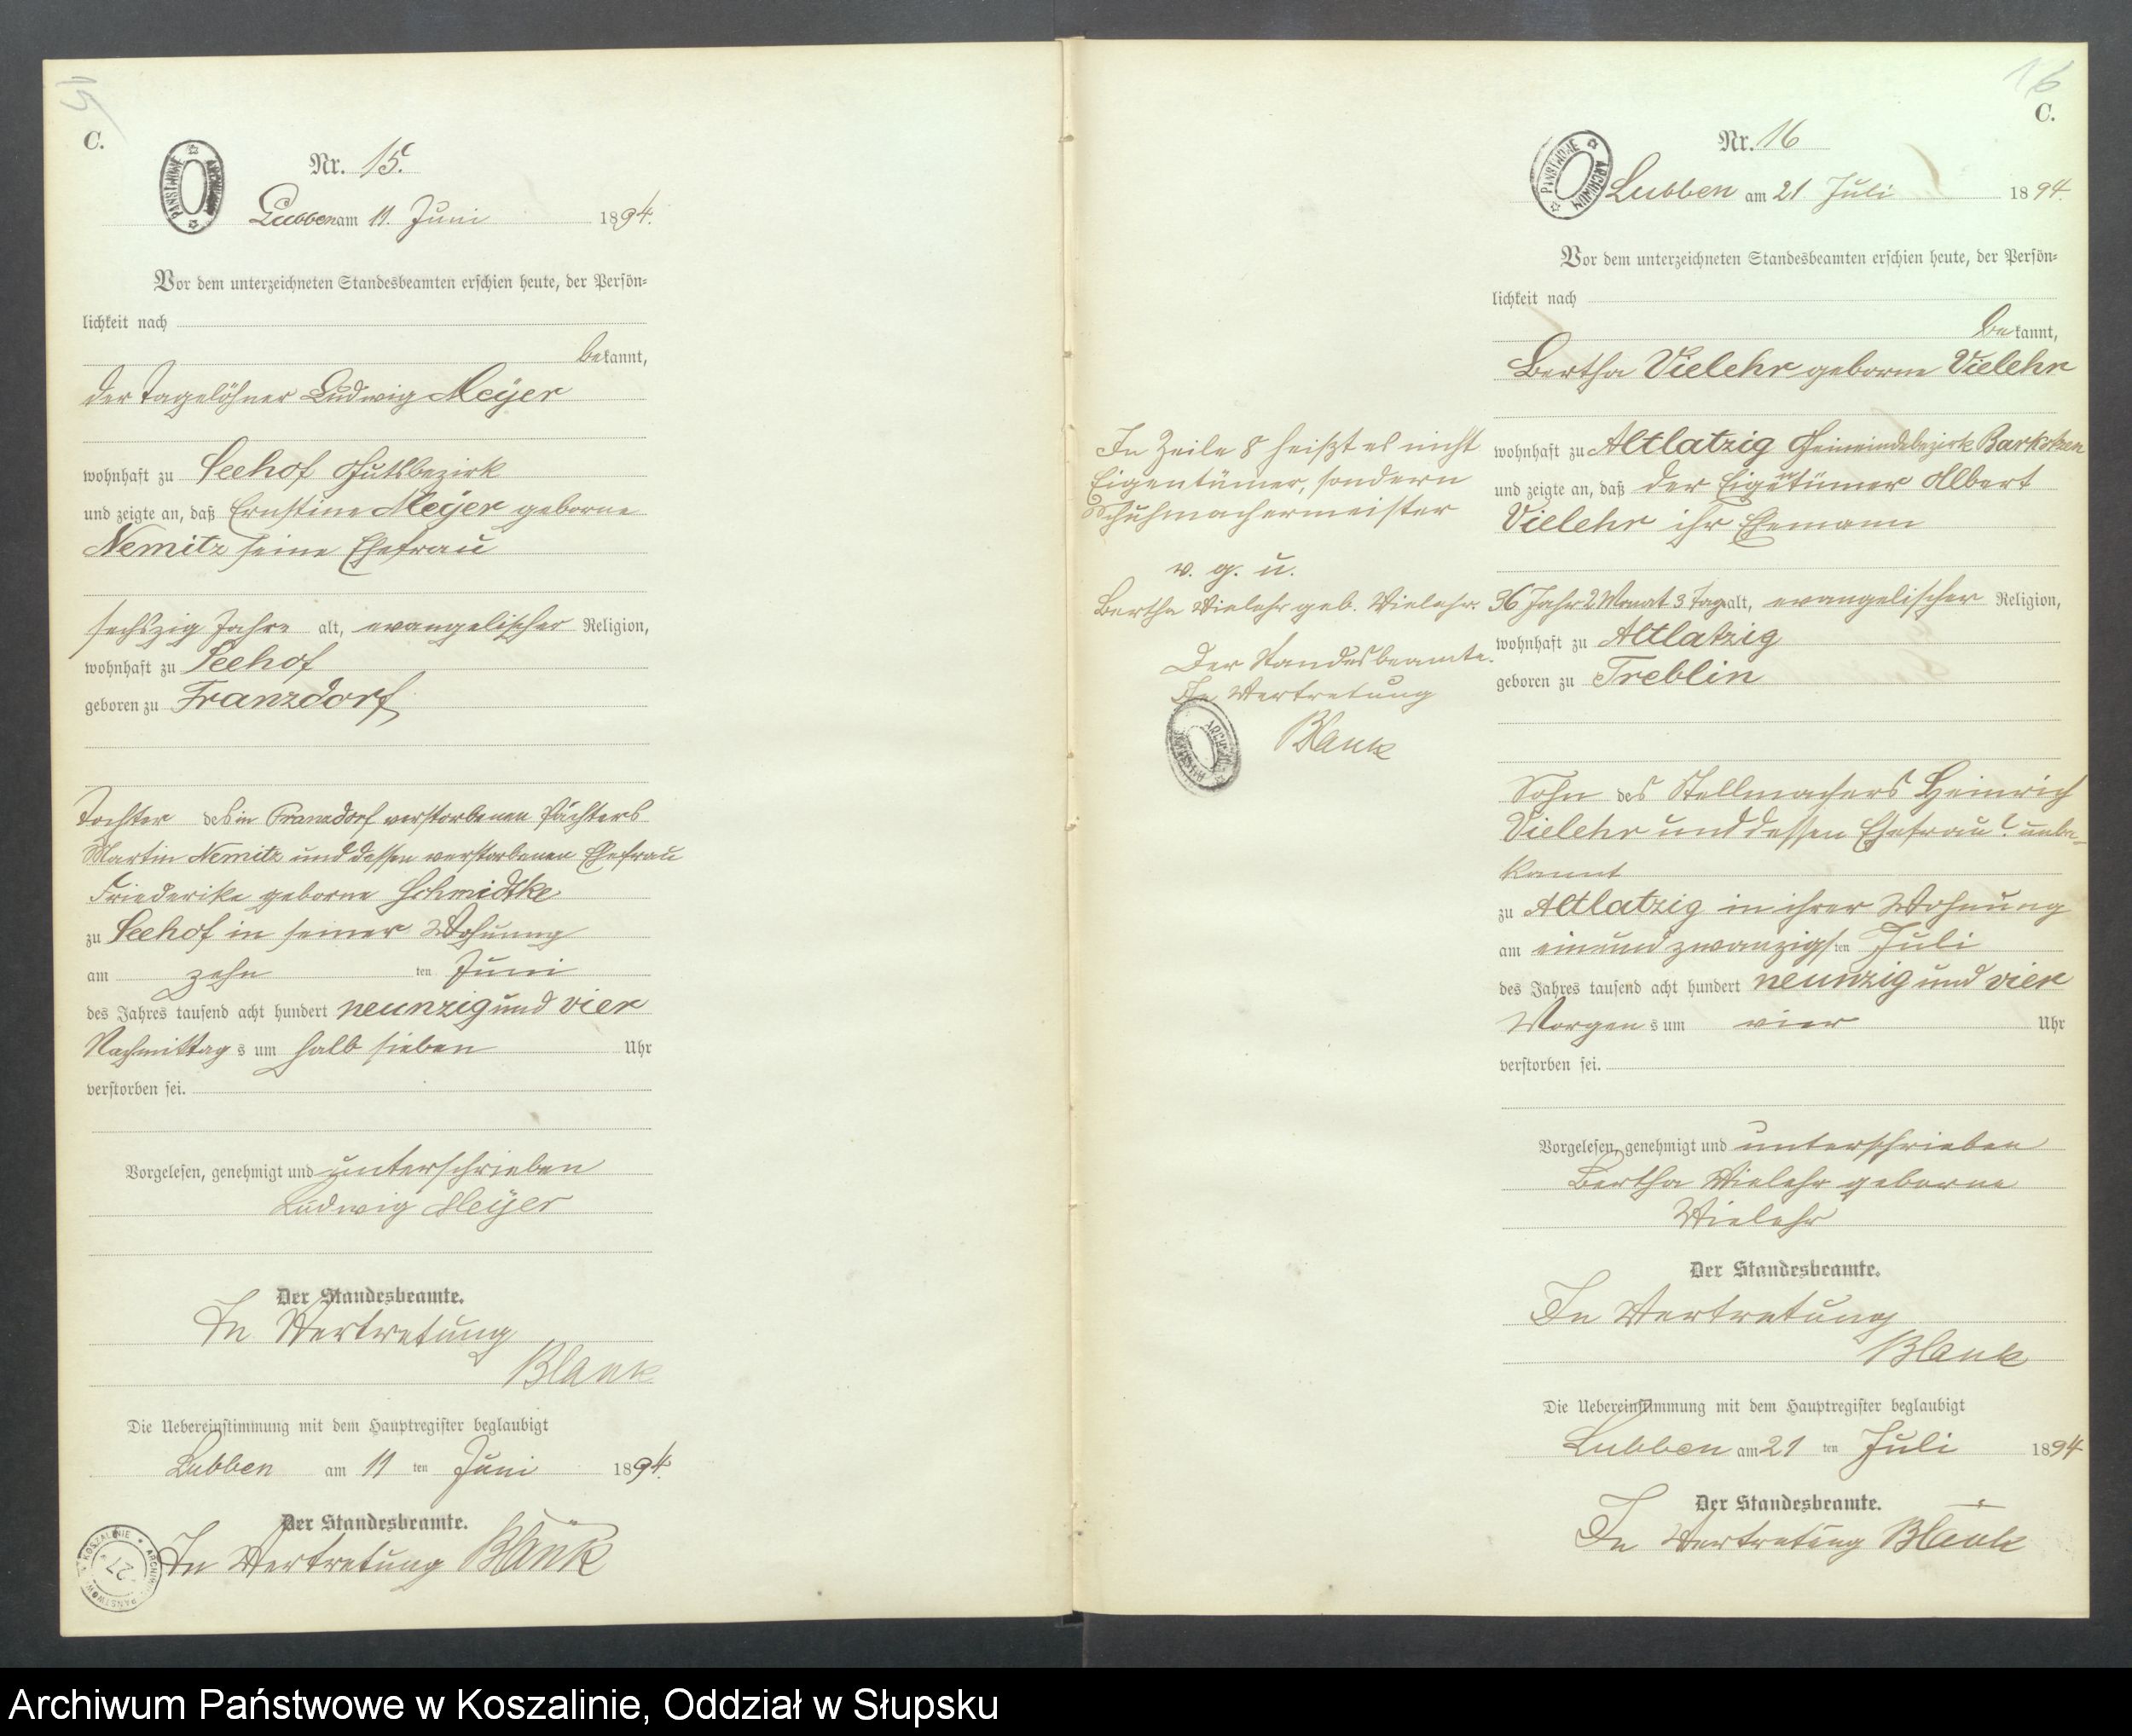 15
C.
Nr. 15.
Lubben am 11. Juni 1894.
Vor dem unterzeichneten Standesbeamten erschien heute, der Persön-
lichkeit nach
bekannt,
der Tagelöhner Ludwig Meyer
wohnhaft zu Seehof Gutsbezirk
und zeigte an, daß Ernstine Meyer geborne
Nemitz seine Ehefrau
sechszig Jahre alt, evangelischer Religion,
wohnhaft zu Seehof
geboren zu Franzdorf
Tochter des in Franzdorf verstorbenen Pächters
Martin Nemitz und dessen verstorbenen Ehefrau
Friederike geborne Schmidtke
zu Seehof in seiner Wohnung
am zehn ten Juni
des Jahres tausend acht hundert neunzig und vier
Nachmittag s um halb sieben Uhr
verstorben sei.
Vorgelesen, genehmigt und unterschrieben
Ludwig Meyer
Der Standesbeamte.
In Vertretung
Blank
Die Uebereinstimmung mit dem Hauptregister beglaubigt
Lubben am 11 ten Juni 1894.
Der Standesbeamte.
In Vertretung Blank
ARCHIWUM PAŃSTWOWE
KOSZALINIE * ARCHIWUM PAŃSTWOWE
27
16
C.
Nr. 16
Lubben am 21 Juli 1894.
Vor dem unterzeichneten Standesbeamten erschien heute, der Persön-
lichkeit nach
bekannt,
Bertha Vielehr geborne Vielehr
wohnhaft zu Altlatzig Gemeindebezirk Barkotzen
und zeigte an, daß der Eigentümer Albert
Vielehr ihr Ehemann
36 Jahr 2 Monat 3 Tage alt, evangelischer Religion,
wohnhaft zu Altlatzig
geboren zu Treblin
Sohn des Stellmachers Heinrich
Vielehr und dessen Ehefrau ? unbe-
kannt
zu Altlatzig in ihrer Wohnung
am einundzwanzigsten Juli
des Jahres tausend acht hundert neunzig und vier
Morgen s um vier Uhr
verstorben sei.
Vorgelesen, genehmigt und unterschrieben
Bertha Vielehr geborne
Vielehr
Der Standesbeamte.
In Vertretung
Blank
Die Uebereinstimmung mit dem Hauptregister beglaubigt
Lubben am 21 ten Juli 1894
Der Standesbeamte.
In Vertretung Blank
In Zeile 8 heißt es nicht
Eigentümer, sondern
Schuhmachermeister
v. g. u.
Bertha Vielehr geb. Vielehr.
Der Standesbeamte.
In Vertretung
Blank
ARCHIWUM PAŃSTWOWE
ARCHIWUM PAŃSTWOWE
Archiwum Państwowe w Koszalinie, Oddział w Słupsku